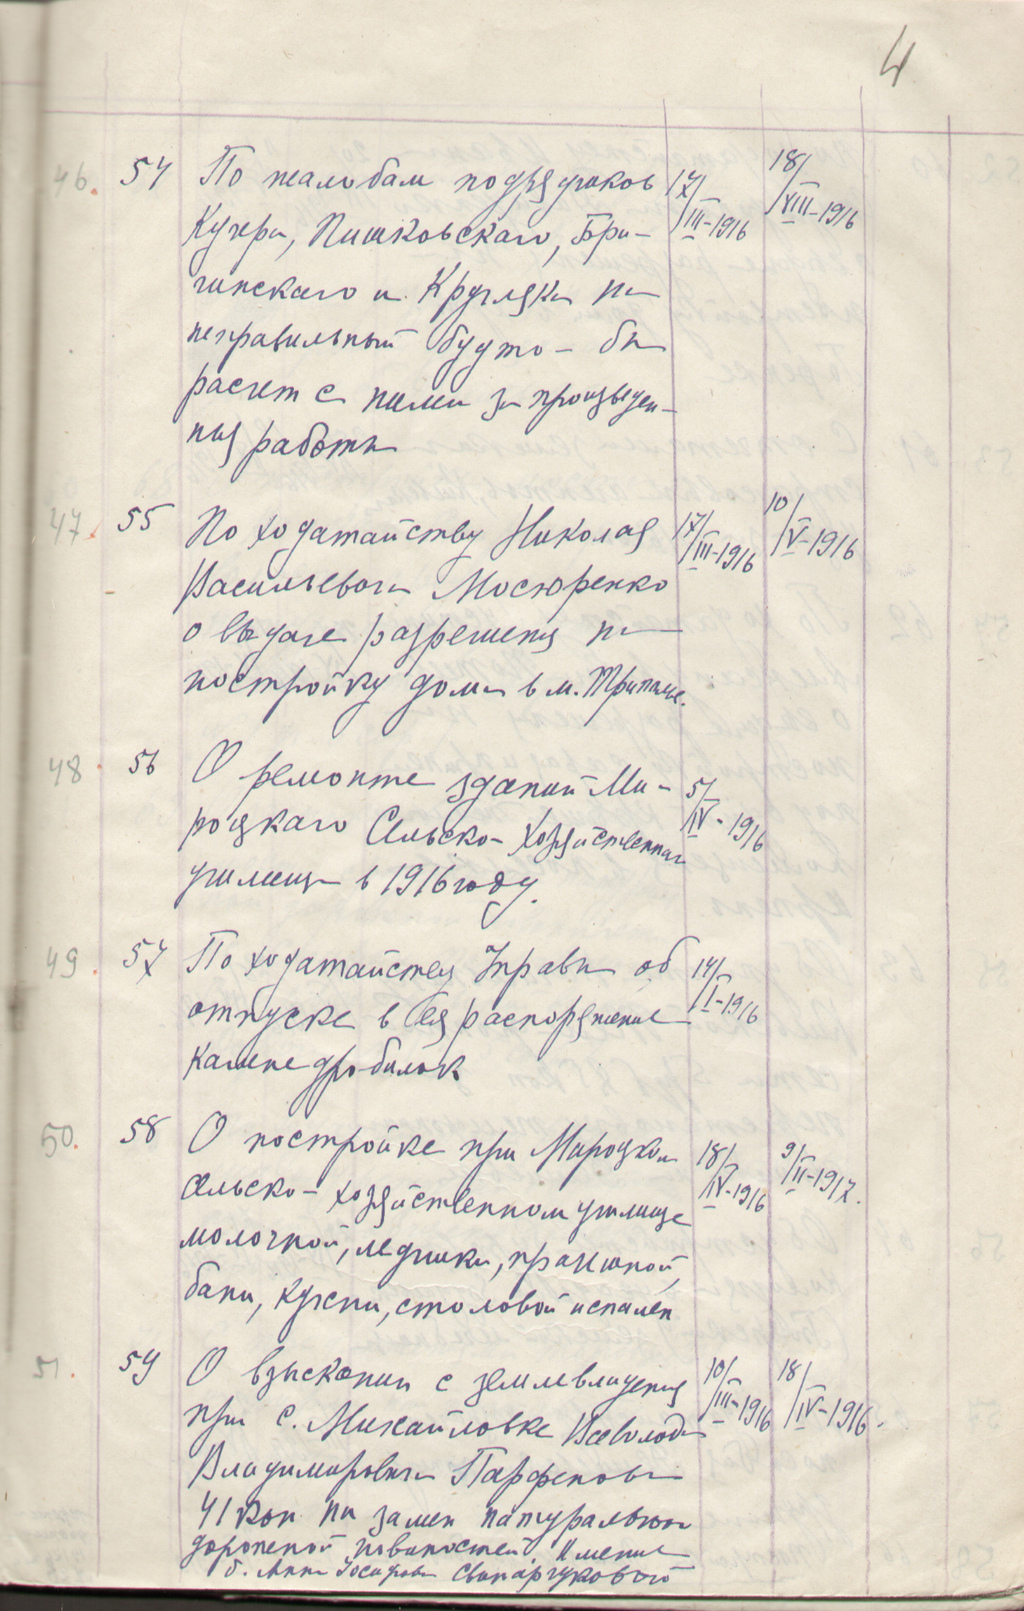 4
46. 54 По жалобам подрядчиков 17/III-1916 18/VIII-1916
Кучера, Пишковскаго, Бра-
гинскаго и Кругляка на
неправильный будто-бы
расчет с ними за произведен-
ныя работы
47. 55 По ходатайству Николая 17/III-1916 10/V-1916
Васильевича Мосюренко
о выдаче разрешения на
постройку дома в м. Триполье.
48 56 О ремонте зданий Ми- 5/IV-1916
роцкаго Сельско-Хозяйственнаго
училища в 1916 году.
49. 57 По ходатайству Управы об 14/I-1916
отпуске в Ея распоряжение
камнедробилок
50. 58 О постройке при Мироцком 18/IV-1916 9/II-1917.
сельско-хозяйственном училище
молочной, ледника, прачешной,
бани, кухни, столовой и спален
51. 59 О взыскании с землевладения 10/III-1916 18/IV-1916.
при с. Михайловке Всеволода
Владимировича Парфенова
41 коп на замен натуральной
дорожной повинностей. Имение
б. Анны